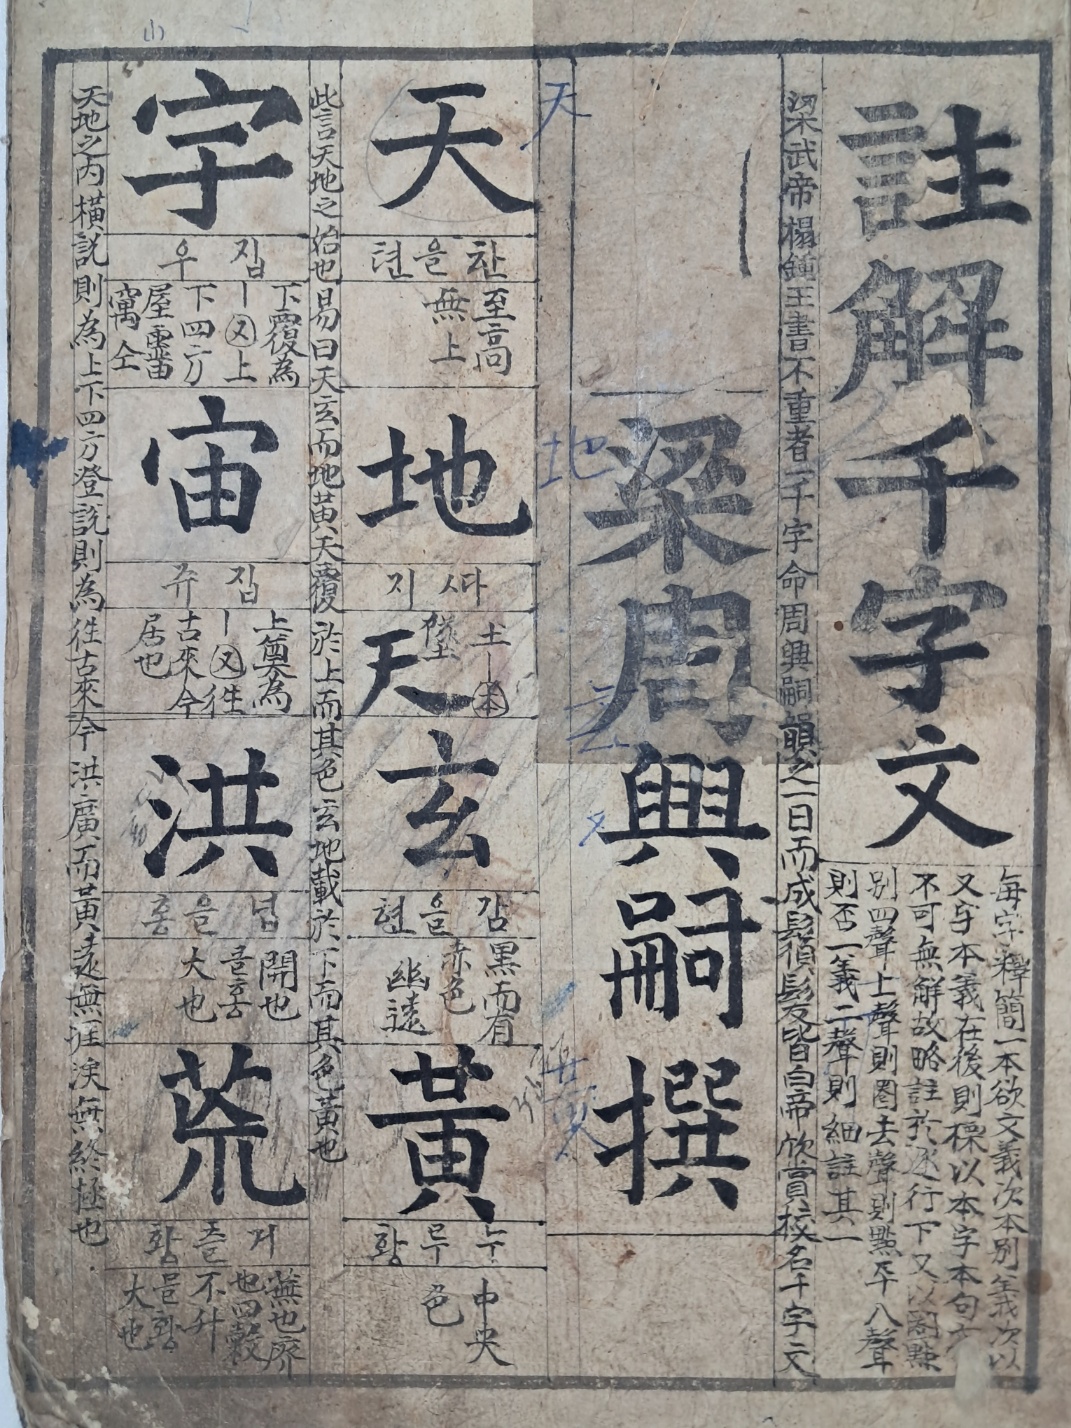 註解千字文
每字釋簡一本欲文義次本別義次以
又与本義在後則標以本字本句文
不可無解故略註於逐行下又以圈點
別四聲上聲則圈去聲則點平入聲
則否一義二聲則細註其一
梁武帝榻鍾王書不重者一千字命周興嗣韻之一日而成鬚鬢髮皆白帝欣賞擢名千字文
梁周興嗣撰
天
하늘텬
至高
無上
地
따지
土
堡
天
玄
감을현
黑而有
赤色
幽遠
黃
누루황
中央
色
此言天地之始也易曰天玄而地黃天覆於上而其色玄地載於下而其色黃也
字
집우
下覆為
上
下四方
屋霤
寓仝
宙
집쥬
上奠為
往
古來今
居也
洪
넙을홍
開也
클홍
大也
荒
거츨황
蕪也
也四穀
不升
클황
大也
天地之內橫說則為上下四方登說則為往古來今洪廣而黃遠無涯涘無終極也
天
地
玄